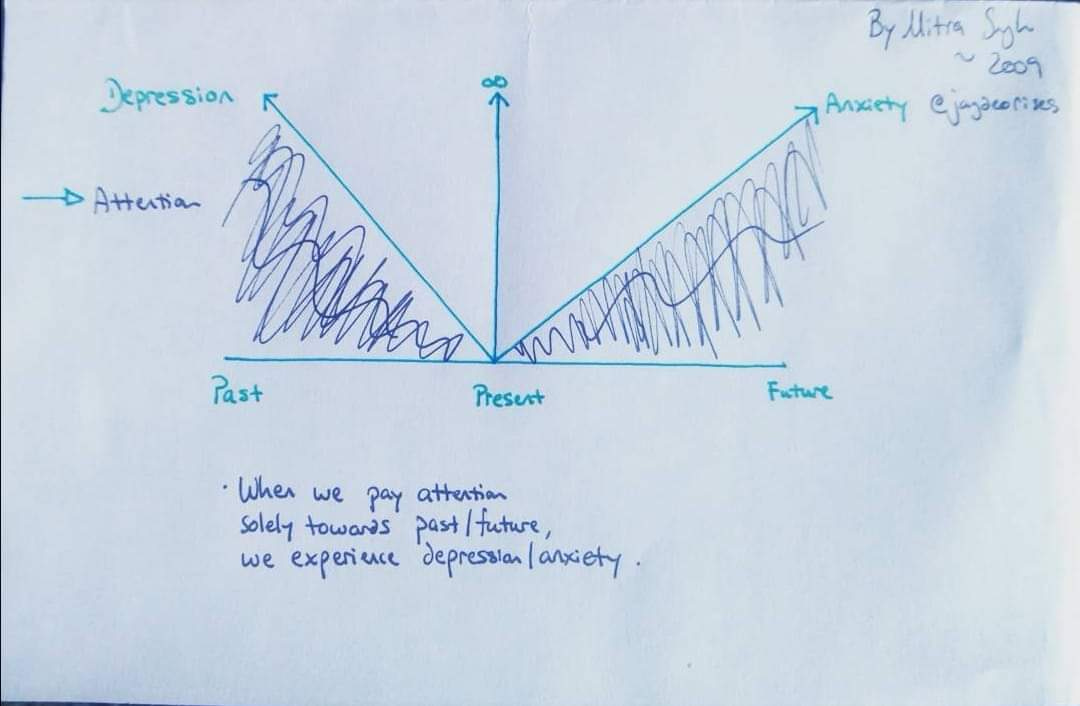 By Mitra
~ 2009
Depression
∞
Anxiety
Attention
Past
Present
Future
· When we pay attention
solely towards past/future,
we experience depression/anxiety.